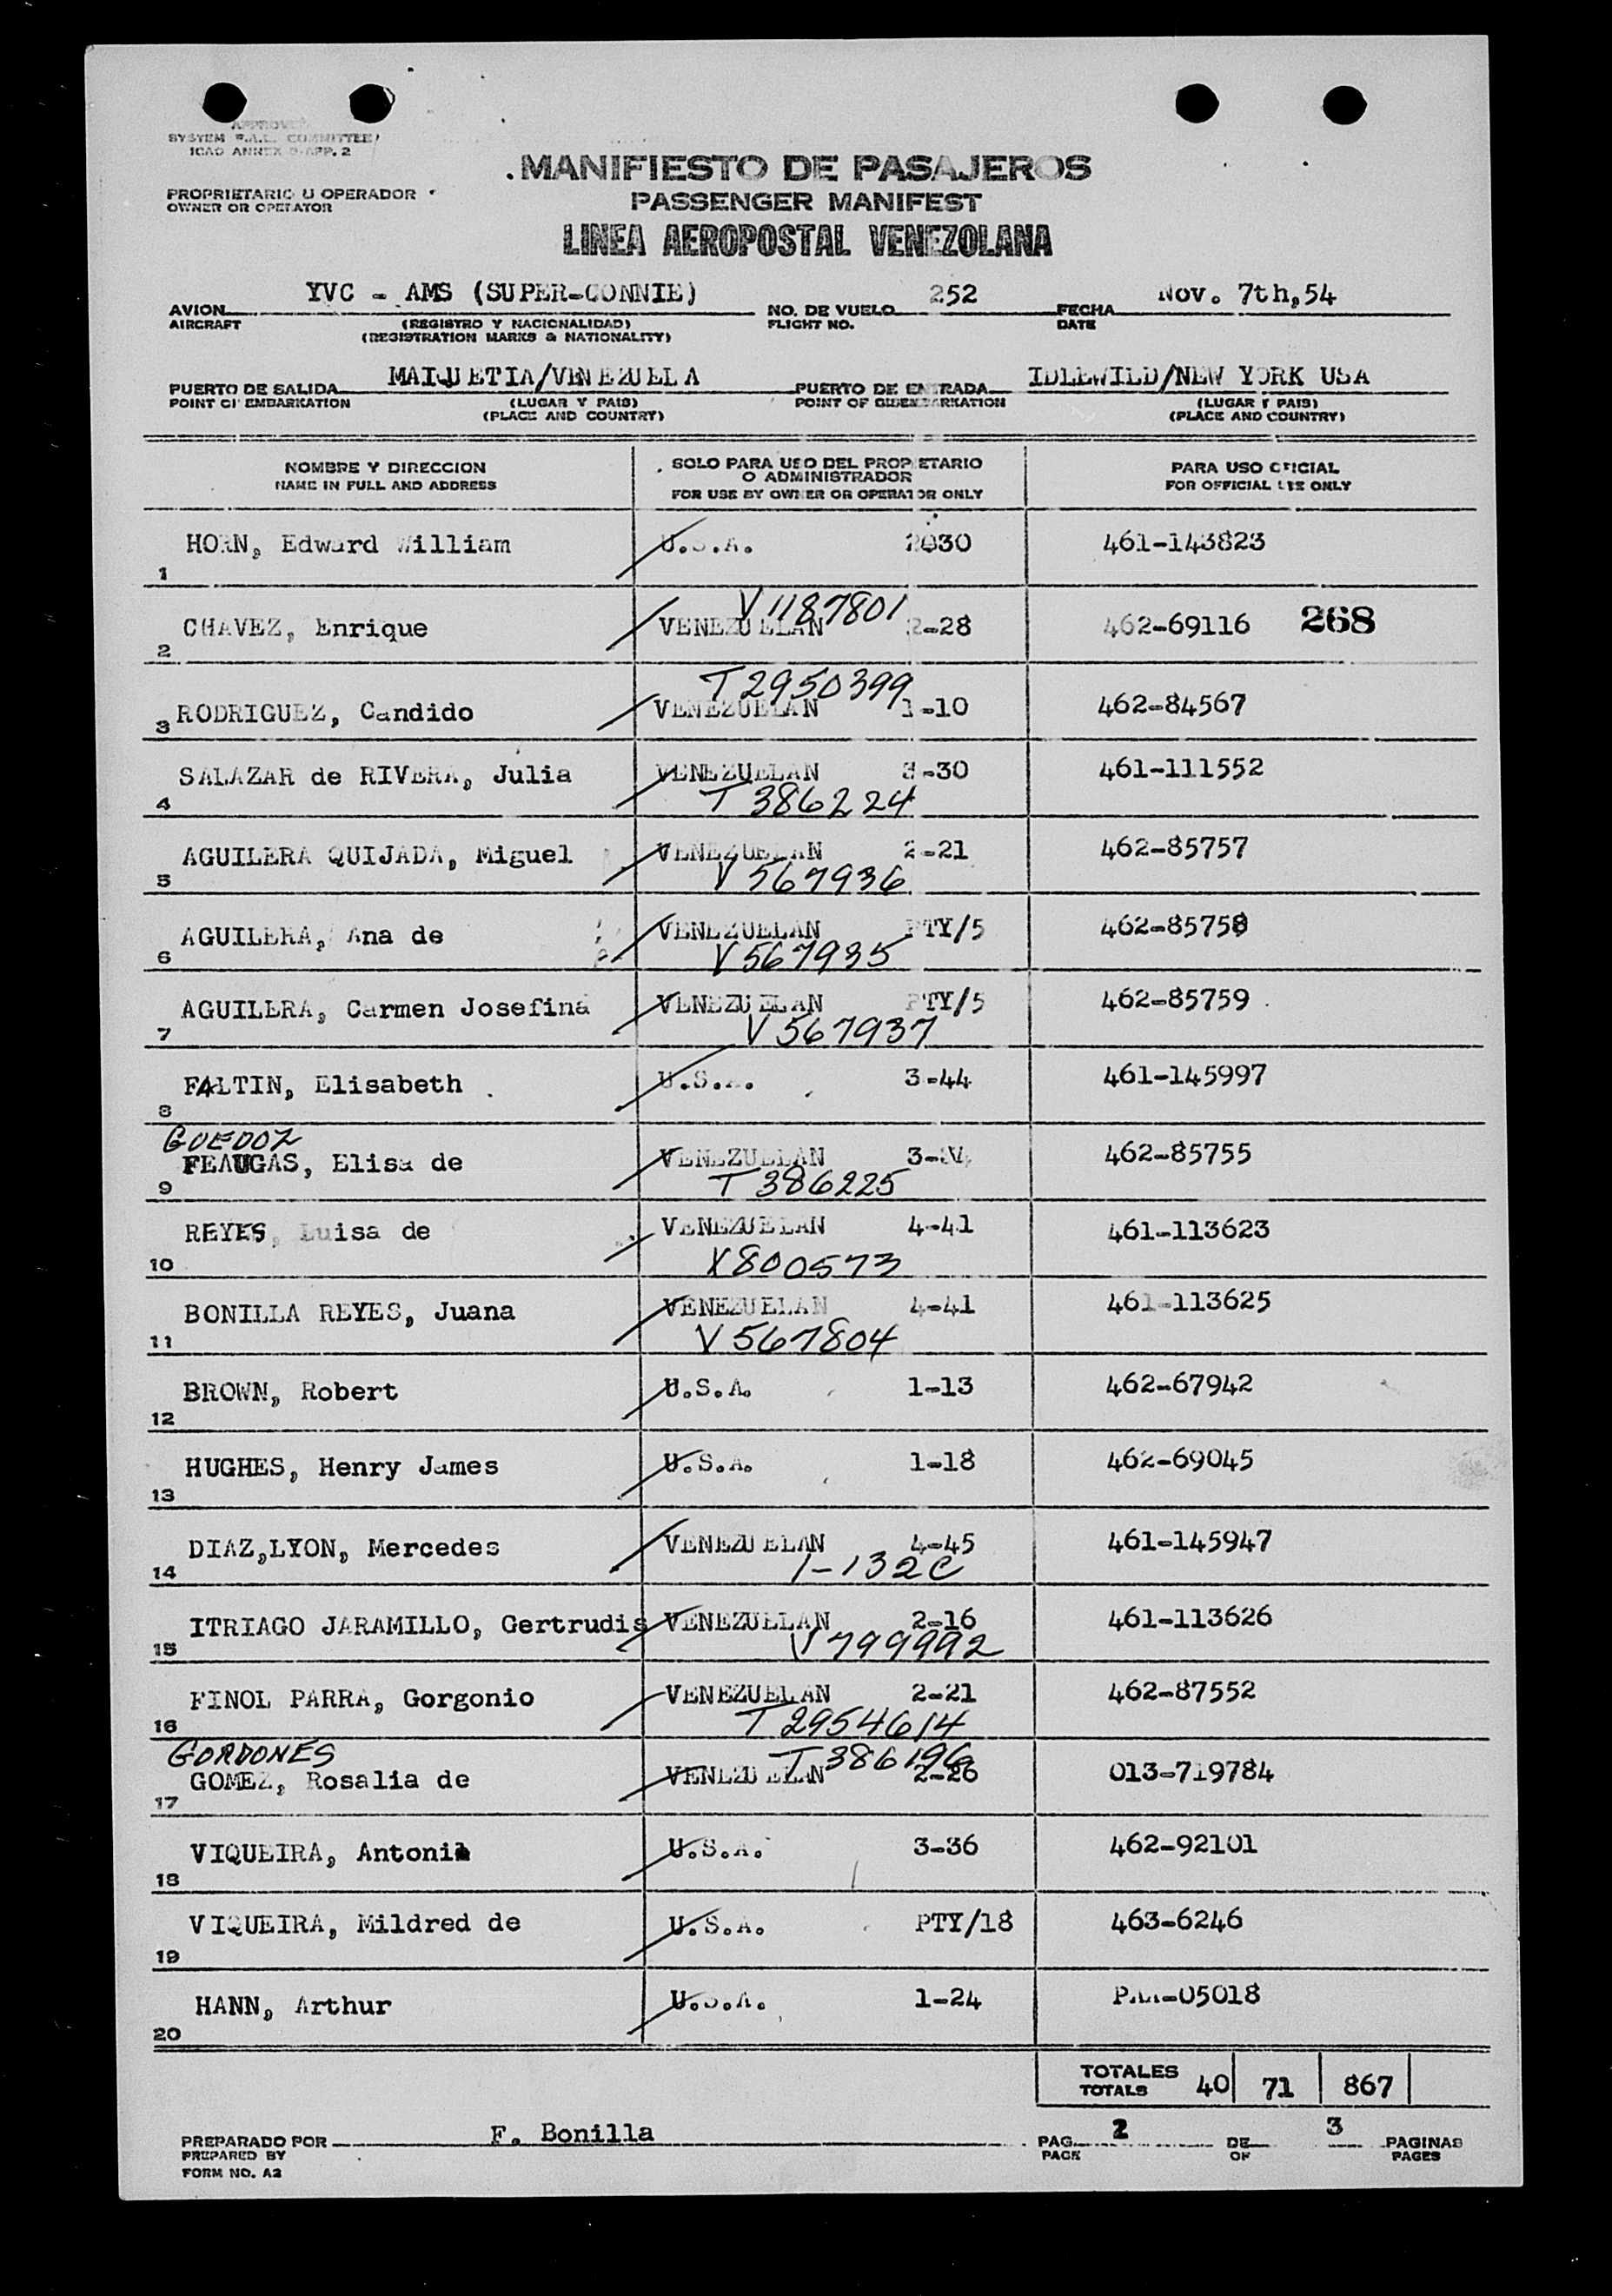 APPROVED
SYSTEM F.A.L. COMMITTEE
ICAO ANNEX 9-APP. 2
MANIFIESTO DE PASAJEROS
PROPRIETARIO U OPERADOR
OWNER OR OPERATOR
PASSENGER MANIFEST
LINEA AEROPOSTAL VENEZOLANA
AVION YVC - AMS (SUPER-CONNIE) NO. DE VUELO 252 FECHA Nov. 7th,54
AIRCRAFT (REGISTRO Y NACIONALIDAD) FLIGHT NO. DATE
(REGISTRATION MARKS & NATIONALITY)
PUERTO DE SALIDA MAIQUETIA/VENEZUELA PUERTO DE ENTRADA IDLEWILD/NEW YORK USA
POINT OF EMBARKATION (LUGAR Y PAIS) POINT OF DISEMBARKATION (LUGAR Y PAIS)
(PLACE AND COUNTRY) (PLACE AND COUNTRY)
NOMBRE Y DIRECCION SOLO PARA USO DEL PROPIETARIO PARA USO OFICIAL
O ADMINISTRADOR
NAME IN FULL AND ADDRESS FOR USE BY OWNER OR OPERATOR ONLY FOR OFFICIAL USE ONLY
1 HORN, Edward William U.S.A. 2030 461-143823
V1187801
2 CHAVEZ, Enrique VENEZUELAN 2-28 462-69116 268
T2950399
3 RODRIGUEZ, Candido VENEZUELAN 1-10 462-84567
4 SALAZAR de RIVERA, Julia VENEZUELAN 3-30 461-111552
T386224
5 AGUILERA QUIJADA, Miguel VENEZUELAN 2-21 462-85757
V567936
6 AGUILERA, Ana de VENEZUELAN PTY/5 462-85758
V567935
7 AGUILERA, Carmen Josefina VENEZUELAN PTY/5 462-85759
V567937
8 FALTIN, Elisabeth U.S.A. 3-44 461-145997
GUEDOZ
9 FEAUGAS, Elisa de VENEZUELAN 462-85755
T386225
10 REYES, Luisa de VENEZUELAN 4-41 461-113623
X800573
11 BONILLA REYES, Juana VENEZUELAN 4-41 461-113625
V567804
12 BROWN, Robert U.S.A. 1-13 462-67942
13 HUGHES, Henry James U.S.A. 1-18 462-69045
14 DIAZ,LYON, Mercedes VENEZUELAN 4-45 461-145947
1-132C
15 ITRIAGO JARAMILLO, Gertrudis VENEZUELAN 2-16 461-113626
V799992
16 FINOL PARRA, Gorgonio VENEZUELAN 2-21 462-87552
T2954614
GORDONES T386196
17 GOMEZ, Rosalia de VENEZUELAN 2-26 013-719784
18 VIQUEIRA, Antonia U.S.A. 3-36 462-92101
19 VIQUEIRA, Mildred de U.S.A. PTY/18 463-6246
20 HANN, Arthur U.S.A. 1-24 PAA-05018
TOTALES
TOTALS 40 71 867
PREPARADO POR F. Bonilla PAG. 2 DE 3 PAGINAS
PREPARED BY PAGE OF PAGES
FORM NO. A2